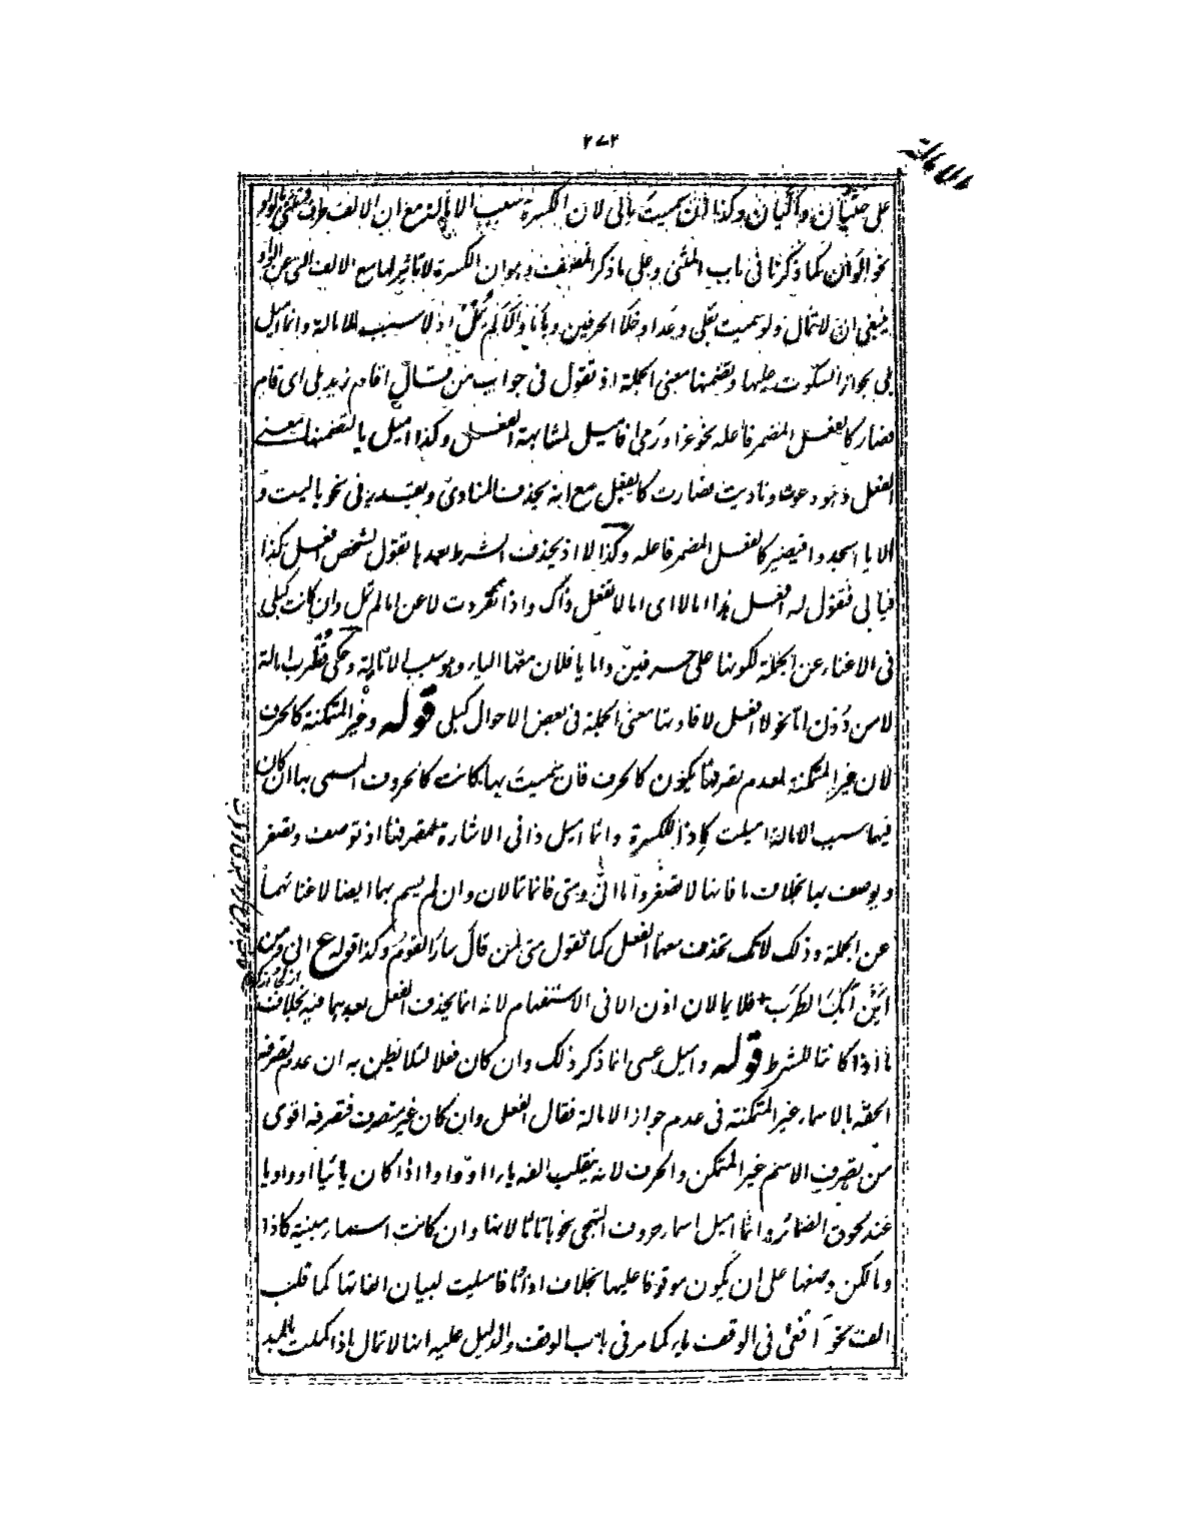 ۲۷۲
الامالة
على حتيان وأليان وكذا ان سميت بالى لان الكسرة سبب الامالة مع ان الالف طرف فتثنى بالواو
نحو الوان كما ذكرنا فى باب المثنى وعلى ما ذكر المصنف وهو ان الكسرة لا تاثير لها مع الالف التى عن الواو
ينبغى ان لا تمال ولو سميت بعلى وعدا وخلا الحرفين وبأما وألا لم تمل اذ لا سبب للامالة وانما اميل
بلى بجواز السكوت عليها وتضمنها معنى الجملة اذ تقول فى جواب من قال اقام زيد بلى اى قام
فصار كالفعل المضمر فاعله نحو غزا ورمى فاميل لمشابهة الفعل وكذا اميل يا لتضمنها معنى
الفعل وهو دعوت وناديت فصارت كالفعل مع انه يحذف المنادى ويقدر فى نحو يا ليت و
الا يا اسجدوا فيصير كالفعل المضمر فاعله وكذا لا اذ يحذف الشرط بعدها تقول لشخص افعل كذا
فيأبى فتقول له افعل هذا امالا اى اما لا تفعل ذاك واذا تجردت لا عن اما لم تمل وان كانت كبلى
فى الاغناء عن الجملة لكونها على حرفين واما يا فلان معها الياء وهو سبب الامالة وحكى قطرب امالة
لا من دون اما نحو لا افعل لافادتها معنى الجملة فى بعض الاحوال كبلى قوله وغير المتمكنة كالحرف
لان غير المتمكنة لعدم تصرفها تكون كالحرف فان سميت بها كانت كالحروف المسمى بها ان كان
فيها سبب الامالة اميلت كاذا للكسرة وانما اميل ذا فى الاشارة لتصرفها اذ توصف وتصغر
ويوصف بها بخلاف ما فانها لا تصغر واما انى ومتى فانما تمالان وان لم يسم بهما ايضا لاغنائهما
عن الجملة وذلك لانك تحذف معهما الفعل كما تقول متى لمن قال سار القوم وكذا قوله ع انى ومن
اين آبك الطرب + فلا يمالان اذن الا فى الاستفهام لانه انما يحذف الفعل بعدهما فيه بخلاف
ما اذا كانتا للشرط قوله واميل عسى انما ذكر ذلك وان كان فعلا لئلا يظن به ان عدم تصرفه
الحقه بالاسماء غير المتمكنة فى عدم جواز الامالة فقال الفعل وان كان غير متصرف فتصرفه اقوى
من تصرف الاسم غير المتمكن والحرف لانه ينقلب الفه ياء او واوا اذا كان يائيا او واويا
عند لحوق الضمائر وانما اميل اسماء حروف التهجى نحو باتاثا لانها وان كانت اسماء مبنية كاذا
وما لكن وضعها على ان يكون موقوفا عليها بخلاف اذا وما فاميلت لبيان الفاتها كما قلب
الف نحو افعى فى الوقف ياء كما مر فى باب الوقف والدليل عليه انها لا تمال اذا كملت بالمد